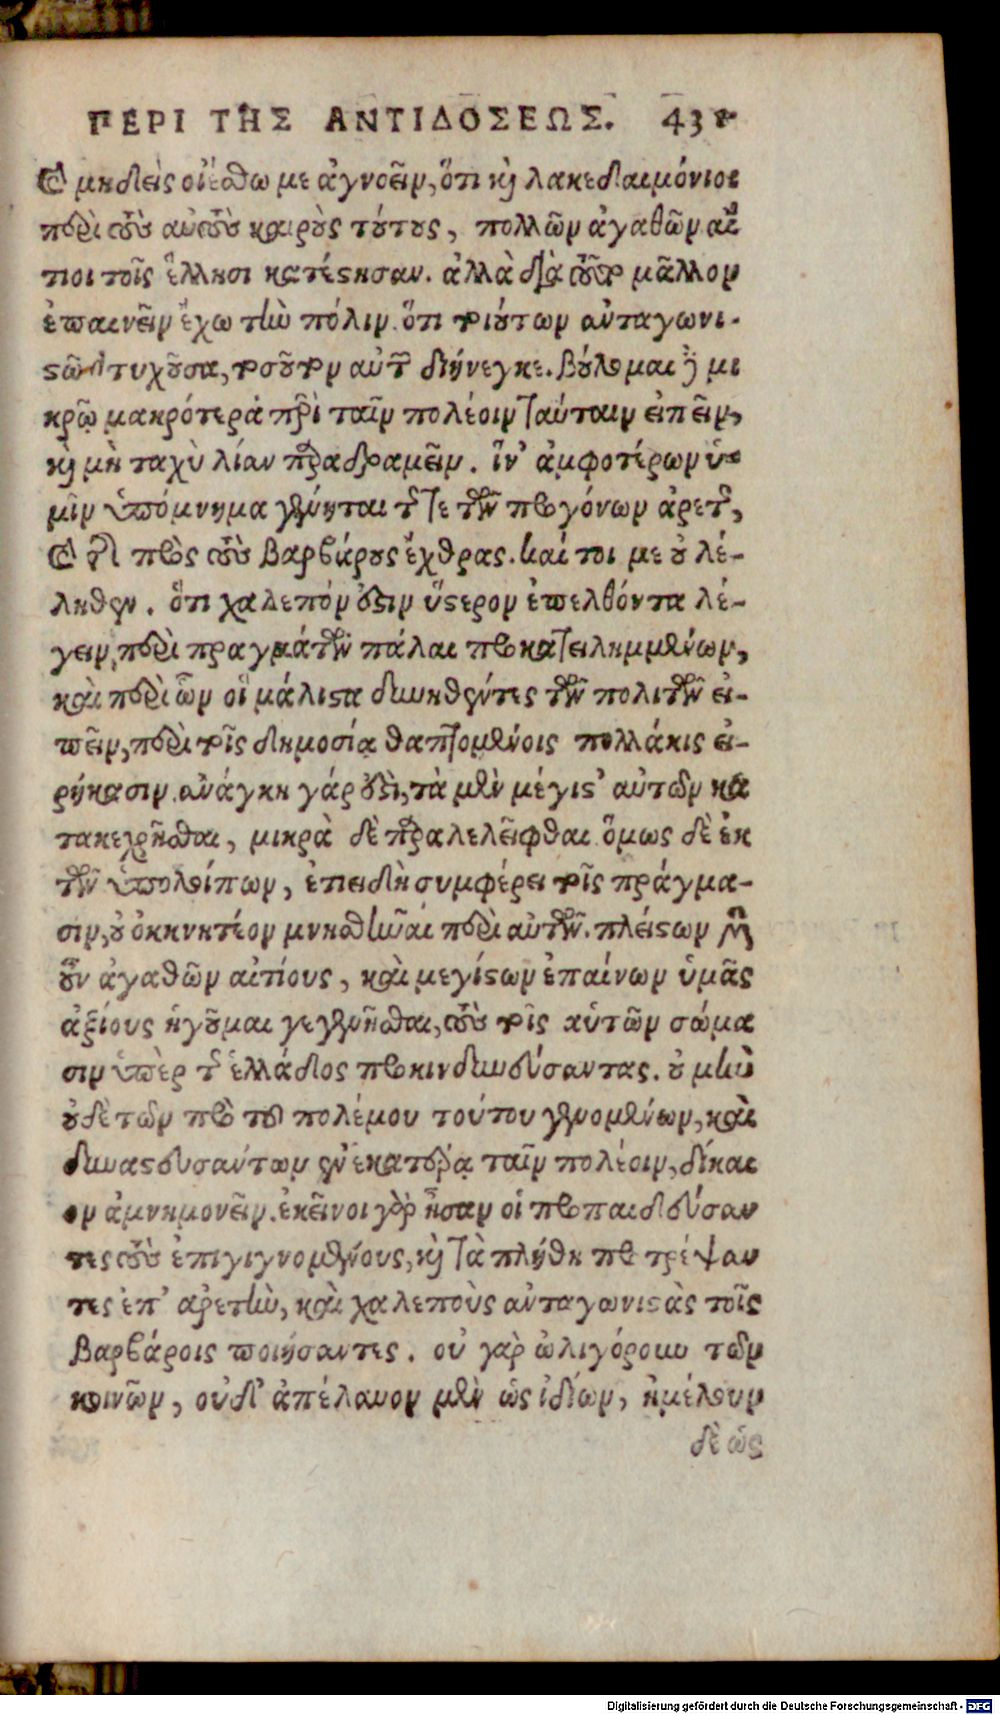 ΠΕΡΙ ΤΗΣ ΑΝΤΙΔΟΣΕΩΣ. 431
καὶ μηδεὶς οἰέσθω με ἀγνοεῖν, ὅτι καὶ λακεδαιμόνιοι
περὶ τοὺς αὐτοὺς καιροὺς τούτους, πολλῶν ἀγαθῶν αἴ
τιοι τοῖς ἕλλησι κατέστησαν. ἀλλὰ διὰ τοῦτο μᾶλλον
ἐπαινεῖν ἔχω τὴν πόλιν. ὅτι τοιούτων ἀνταγωνι-
στῶν τυχοῦσα, τοσοῦτον αὐτῶν διήνεγκε. βούλομαι δὲ μι
κρῷ μακρότερα περὶ ταῖν πολέοιν ταύταιν εἰπεῖν,
καὶ μὴ ταχὺ λίαν παραδραμεῖν. ἵν' ἀμφοτέρων ὑ-
μῖν ὑπόμνημα γένηται τῆς τε τῶν προγόνων ἀρετῆς,
καὶ τῆς πρὸς τοὺς βαρβάρους ἔχθρας. καί τοι με οὐ λέ-
ληθεν. ὅτι χαλεπόν ἐστιν ὕστερον ἐπελθόντα λέ-
γειν, περὶ πραγμάτων πάλαι προκατειλημμένων,
καὶ περὶ ὧν οἱ μάλιστα δυνηθέντες τῶν πολιτῶν εἰ-
πεῖν, περὶ τοῖς δημοσίᾳ θαπτομένοις πολλάκις εἰ-
ρήκασιν. ἀνάγκη γάρ ἐστι, τὰ μὲν μέγιστ' αὐτῶν κα
τακεχρῆσθαι, μικρὰ δὲ παραλελεῖφθαι. ὅμως δὲ ἐκ
τῶν ὑπολοίπων, ἐπειδὴ συμφέρει τοῖς πράγμα-
σιν, οὐ ὀκνητέον μνησθῆναι περὶ αὐτῶν. πλείστων μὲν
οὖν ἀγαθῶν αἰτίους, καὶ μεγίστων ἐπαίνων ὑμᾶς
ἀξίους ἡγοῦμαι γεγενῆσθαι, τοὺς τοῖς αὑτῶν σώμα
σιν ὑπὲρ τῆς ἑλλάδος προκινδυνεύσαντας. οὐ μὴν
οὐδὲ τῶν πρὸ τοῦ πολέμου τούτου γενομένων, καὶ
δυναστευσάντων ἐν ἑκατέρᾳ ταῖν πολέοιν, δίκαι
ον ἀμνημονεῖν. ἐκεῖνοι γὰρ ἦσαν οἱ προπαιδεύσαν
τες τοὺς ἐπιγιγνομένους, καὶ τὰ πλήθη προτρέψαν
τες ἐπ' ἀρετὴν, καὶ χαλεποὺς ἀνταγωνιστὰς τοῖς
βαρβάροις ποιήσαντες. οὐ γὰρ ὠλιγόρουν τῶν
κοινῶν, οὐδ' ἀπέλαυον μὲν ὡς ἰδίων, ἠμέλουν
δὲ ὡς
Digitalisierung gefördert durch die Deutsche Forschungsgemeinschaft - DFG